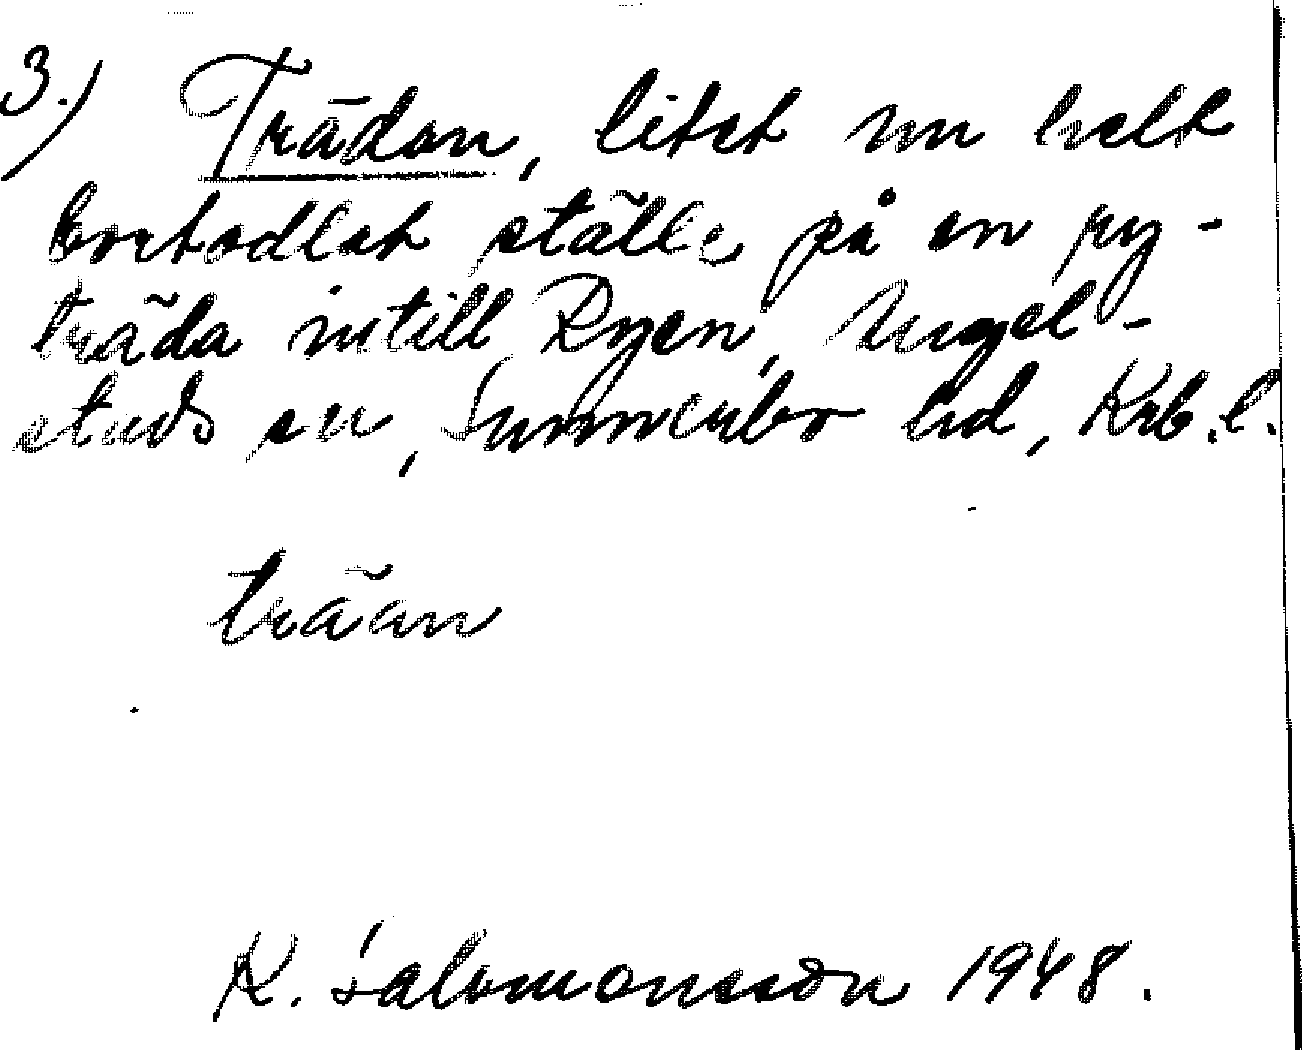 3.) Trädan, litet nu helt
bortodlat ställe på en ny-
träda intill Ryen, Angel-
stads sn, Sunnerbo hd, Krb.l.
träan
K. Salomonsson 1948.